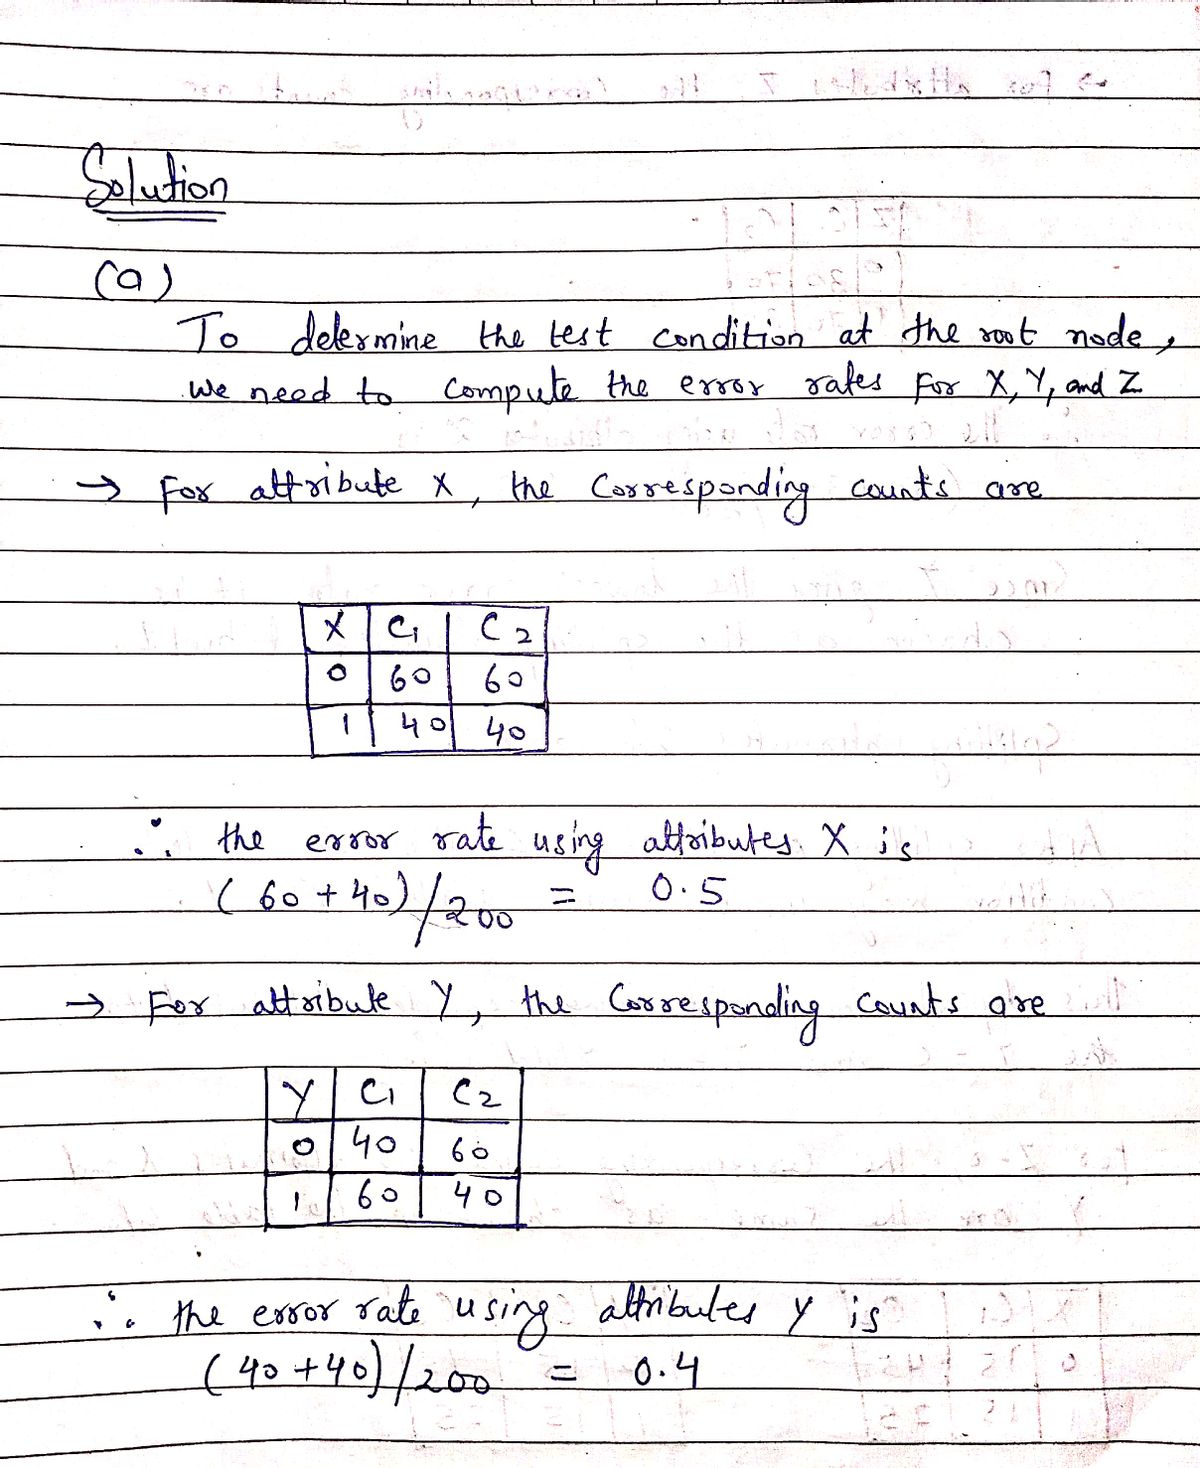 Solution
(a)
To determine the test condition at the root node,
we need to compute the error rates For X, Y, and Z
→ For attribute X, the Corresponding counts are
X C1 C2
0 60 60
1 40 40
∴ the error rate using attributes X is
(60 + 40)/200 = 0.5
→ For attribute Y, the Corresponding counts are
Y C1 C2
0 40 60
1 60 40
∴ the error rate using attributes Y is
(40 + 40)/200 = 0.4